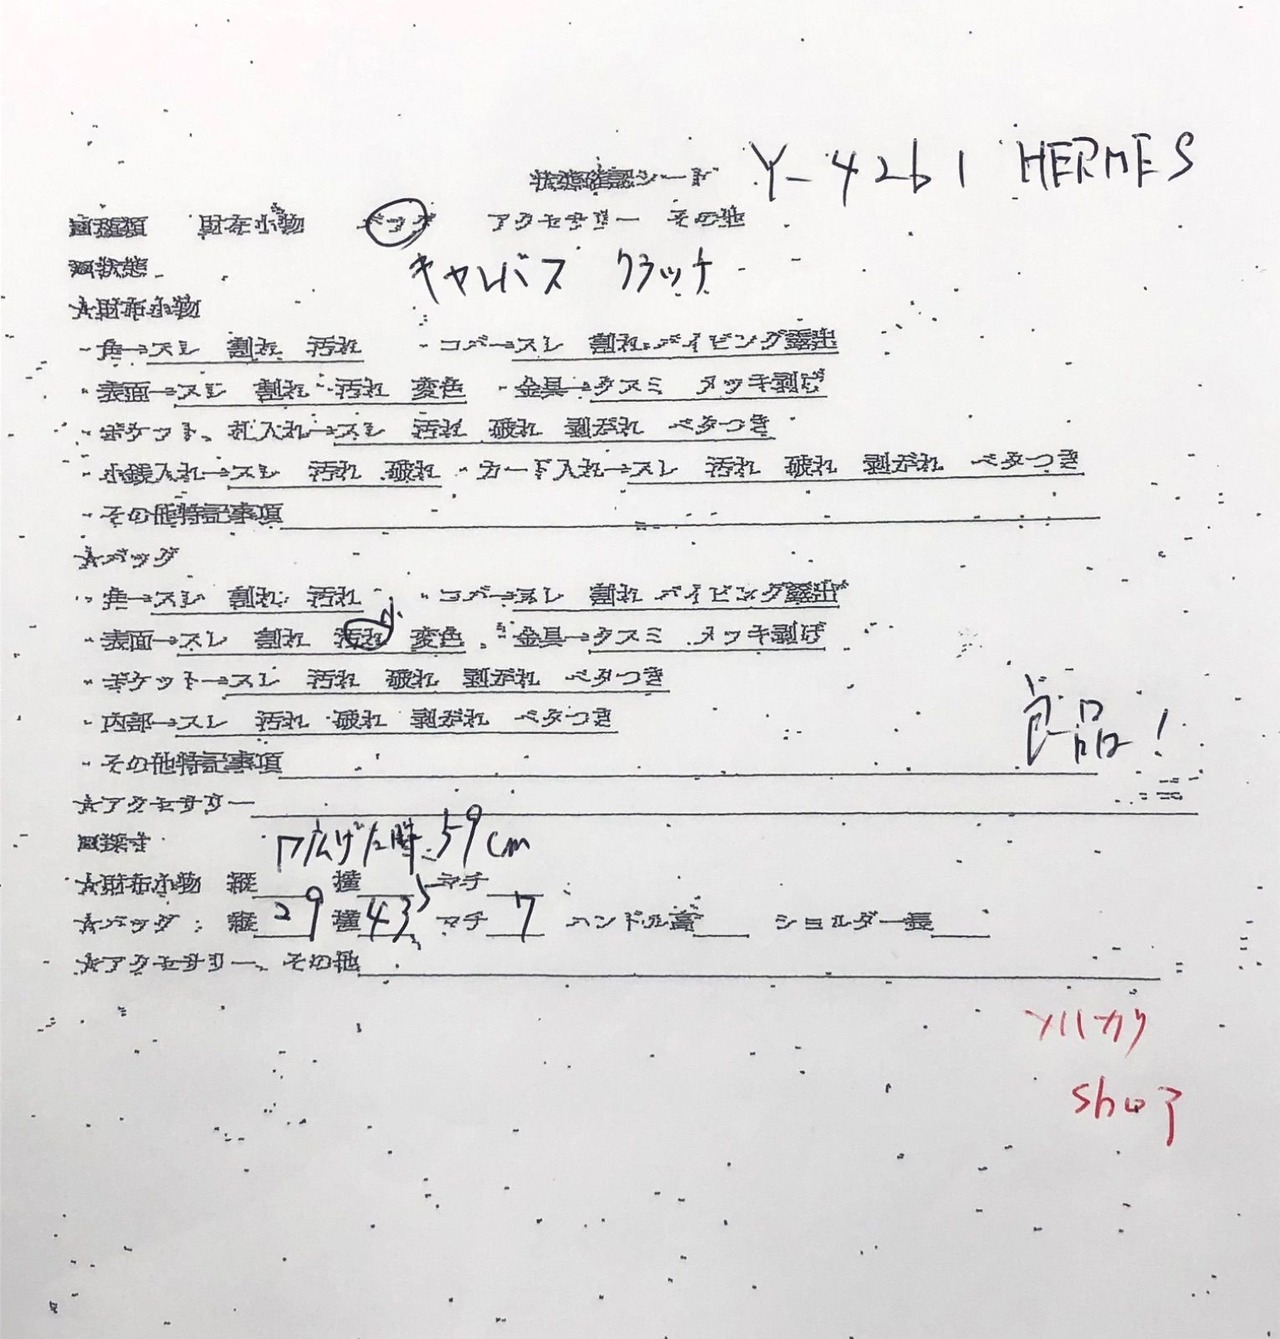 状態確認シート Y-4261 HERMES
□種類 財布小物 バッグ アクセサリー その他
□状態 キャンバス クラッチ
☆財布小物
・角→スレ 割れ 汚れ ・コバ→スレ 割れ パイピング露出
・表面→スレ 割れ 汚れ 変色 ・金具→クスミ メッキ剥げ
・ポケット、札入れ→スレ 汚れ 破れ 剥がれ ベタつき
・小銭入れ→スレ 汚れ 破れ ・カード入れ→スレ 汚れ 破れ 剥がれ ベタつき
・その他特記事項
☆バッグ
・角→スレ 割れ 汚れ ・コバ→スレ 割れ パイピング露出
・表面→スレ 割れ 汚れ 小 変色 ・金具→クスミ メッキ剥げ
・ポケット→スレ 汚れ 破れ 剥がれ ベタつき
・内部→スレ 汚れ 破れ 剥がれ ベタつき
良品!
・その他特記事項
☆アクセサリー
□採寸 口広げた時 59cm
☆財布小物 縦 横 マチ
☆バッグ:縦 29 横 43,5 マチ 7 ハンドル高 ショルダー長
☆アクセサリー、その他
メルカリ